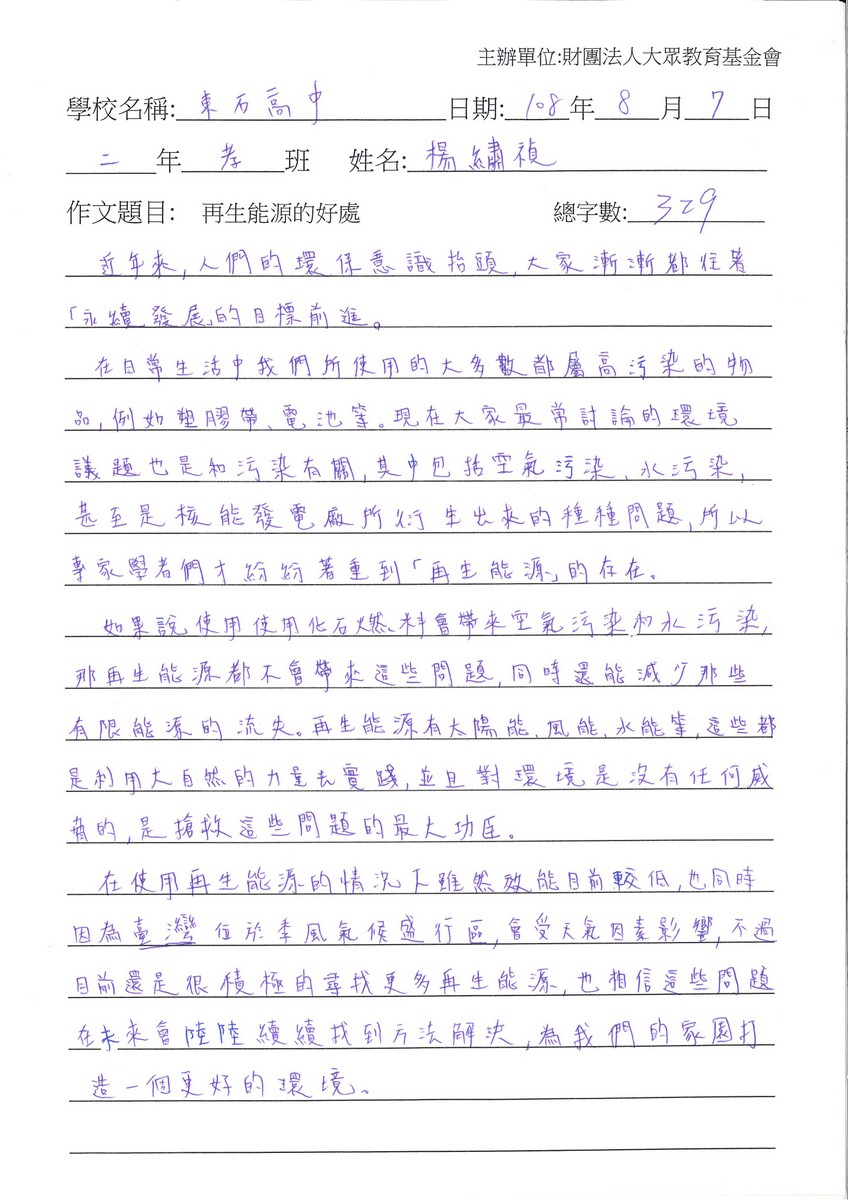 主辦單位:財團法人大眾教育基金會
學校名稱: 東石高中 日期: 108 年 8 月 7 日
二 年 孝 班 姓名: 楊繡禎
作文題目: 再生能源的好處 總字數: 329
近年來,人們的環保意識抬頭,大家漸漸都往著
「永續發展」的目標前進。
在日常生活中我們所使用的大多數都屬高污染的物
品,例如塑膠帶、電池等。現在大家最常討論的環境
議題也是和污染有關,其中包括空氣污染、水污染,
甚至是核能發電廠所衍生出來的種種問題,所以
專家學者們才紛紛著重到「再生能源」的存在。
如果說使用使用化石燃料會帶來空氣污染和水污染,
那再生能源都不會帶來這些問題,同時還能減少那些
有限能源的流失。再生能源有太陽能、風能、水能等,這些都
是利用大自然的力量去實踐,並且對環境是沒有任何威
脅的,是搶救這些問題的最大功臣。
在使用再生能源的情況下雖然效能目前較低,也同時
因為臺灣位於季風氣候盛行區,會受天氣因素影響,不過
目前還是很積極的尋找更多再生能源,也相信這些問題
在未來會陸陸續續找到方法解決,為我們的家園打
造一個更好的環境。